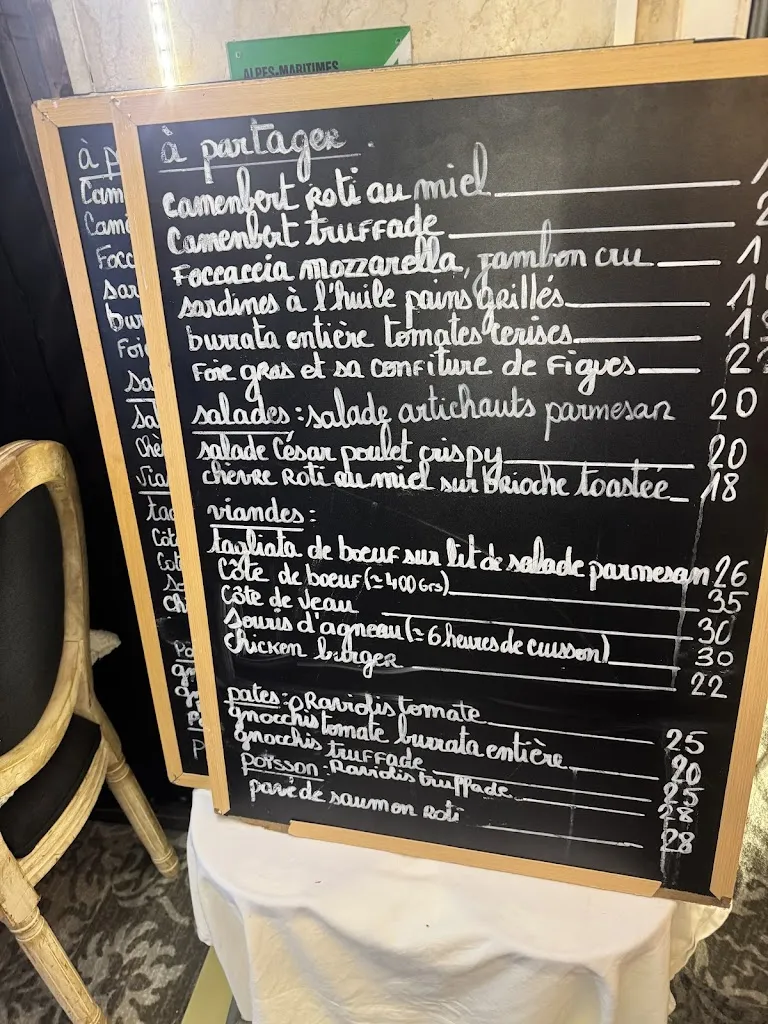 ALPES-MARITIMES
à p
Cam
Came
Focc
sar
bur
Foie
sa
Sal
chè
Via
tag
Côt
Cot
So
ch
Po
gn
gn
P
à partager
Camembert Roti au miel
Camembert truffade
Foccaccia mozzarella, jambon cru
sardines à l'huile pains grillés
burrata entière tomates cerises
Foie gras et sa confiture de Figues
salades : salade artichauts parmesan 20
salade César poulet crispy 20
chèvre Roti au miel sur Brioche toastée 18
viandes :
tagliata de boeuf sur lit de salade parmesan 26
Côte de boeuf (≃ 400 Grs) 35
Côte de veau 30
Souris d'agneau (≃ 6 heures de cuisson) 30
chicken burger 22
pates : Raviolis tomate 25
gnocchis tomate burrata entière 20
gnocchis truffade 25
poisson : Raviolis truffade 28
pavé de saumon Roti 28